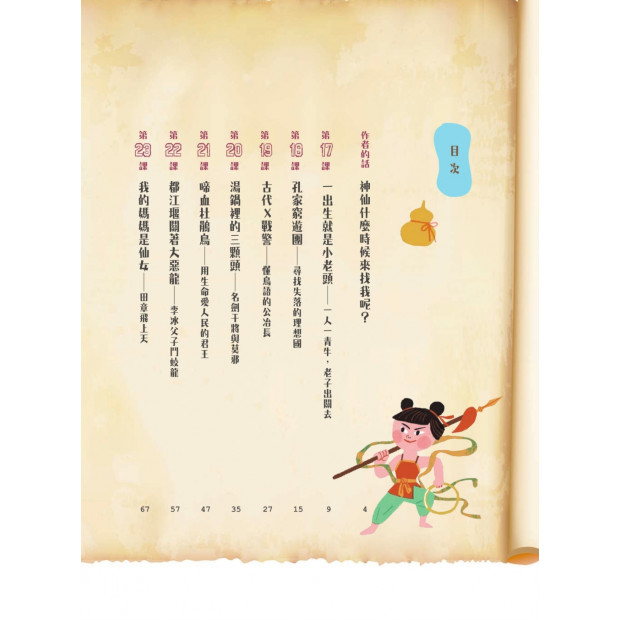 目次
作者的話 神仙什麼時候來找我呢？ 4
第17課 一出生就是小老頭——一人一青牛，老子出關去 9
第18課 孔家窮遊團——尋找失落的理想國 15
第19課 古代X戰警——懂鳥語的公冶長 27
第20課 湯鍋裡的三顆頭——名劍干將與莫邪 35
第21課 啼血杜鵑鳥——用生命愛人民的君王 47
第22課 都江堰關著大惡龍——李冰父子鬥蛟龍 57
第23課 我的媽媽是仙女——田章飛上天 67